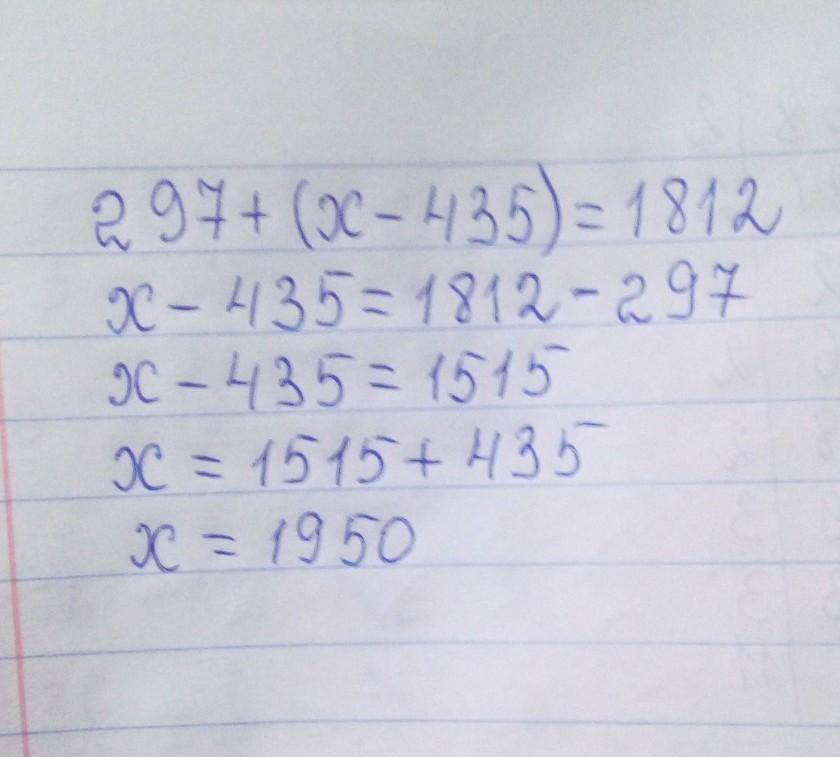 297+(x-435)=1812
x-435=1812-297
x-435=1515
x=1515+435
x=1950